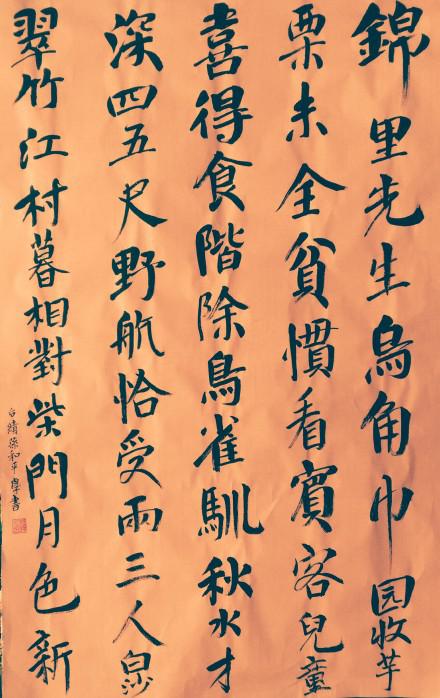 錦里先生烏角巾园收芋
栗未全貧慣看賓客兒童
喜得食階除鳥雀馴秋水才
深四五尺野航恰受兩三人白沙
翠竹江村暮相對柴門月色新
徐和平書